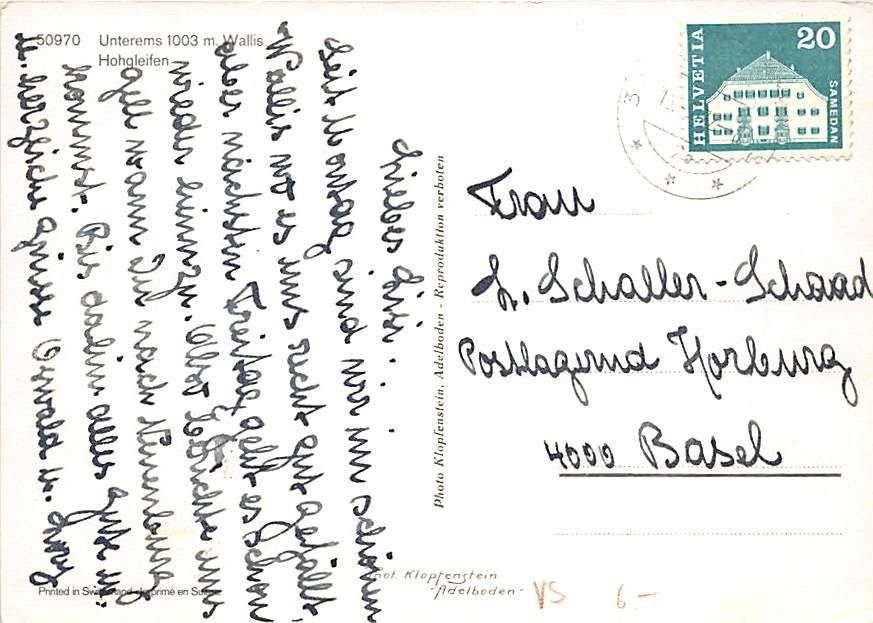 50970 Unterems 1003 m. Wallis
Hohgleifen
Seit Montag sind wir im schönen
Wallis wo es uns recht gut gefällt.
aber nächsten Freitag geht es schon
wieder heimzu. Also berichte uns
gell wann Du nach
kommst. Bis dahin alles gute u.
u. herzliche Grüsse Oswald u.
Photo Klopfenstein, Adelboden - Reproduktion verboten
HELVETIA
20
SAMEDAN
Frau
L. Schaller-Schaad
Postlagernd Horburg
4000 Basel
Phot. Klopfenstein
Adelboden
Printed in Switzerland - Imprimé en Suisse
VS 6.-